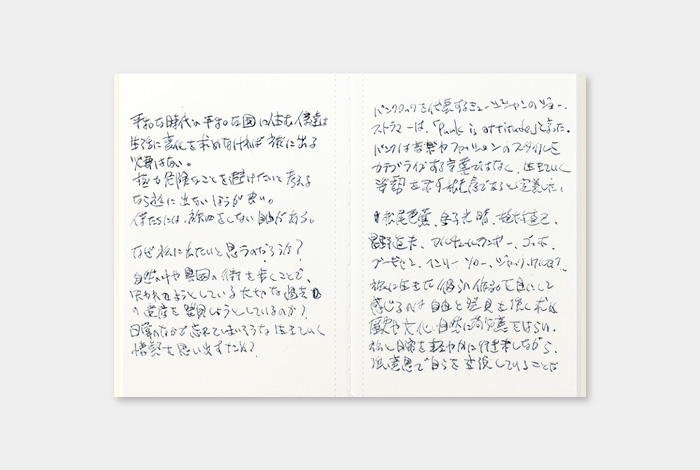 平和な時代の平和な国に住む僕達は
生活に変化を求めなければ旅に出る
必要はない。
極力危険なことを避けたいと考える
なら旅に出ないほうが良い。
僕たちには、旅をしない自由がある。
なぜ旅に出たいと思うのだろうか?
自然の中や異国の街を歩くことで、
失われようとしている大切な過去
の遺産を発見しようとしているのか?
日常のなかで忘れてしまいそうな生きていく
情熱を思い出すため?
パンクロックを代表するミュージシャンのジョー・
ストラマーは、「Punk is attitude」と言った。
パンクは音楽やファッションのスタイルを
カテゴライズする言葉ではなく、生きていく
姿勢を示す態度であると定義した。
松尾芭蕉、金子光晴、植村直己、
星野道夫、ゴッホ、
ゴーギャン、ヘンリー・ソロー、ジャック
旅に生きた彼らの作品を目にして
感じるのは自由と発見を強く求め
歴史や文化、自然に敬意をはらい、
旅と日常を軽やかに行き来しながら、
強い意思で自らを表現していることだ